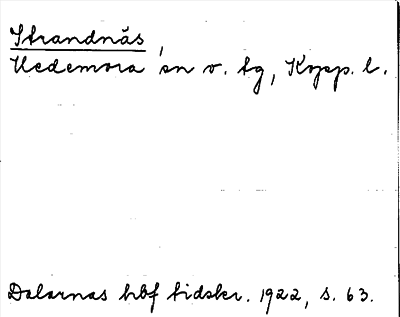 Strandnäs,
Hedemora sn o. tg, Kopp. l.
Dalarnas hbf tidskr. 1922, s. 63.